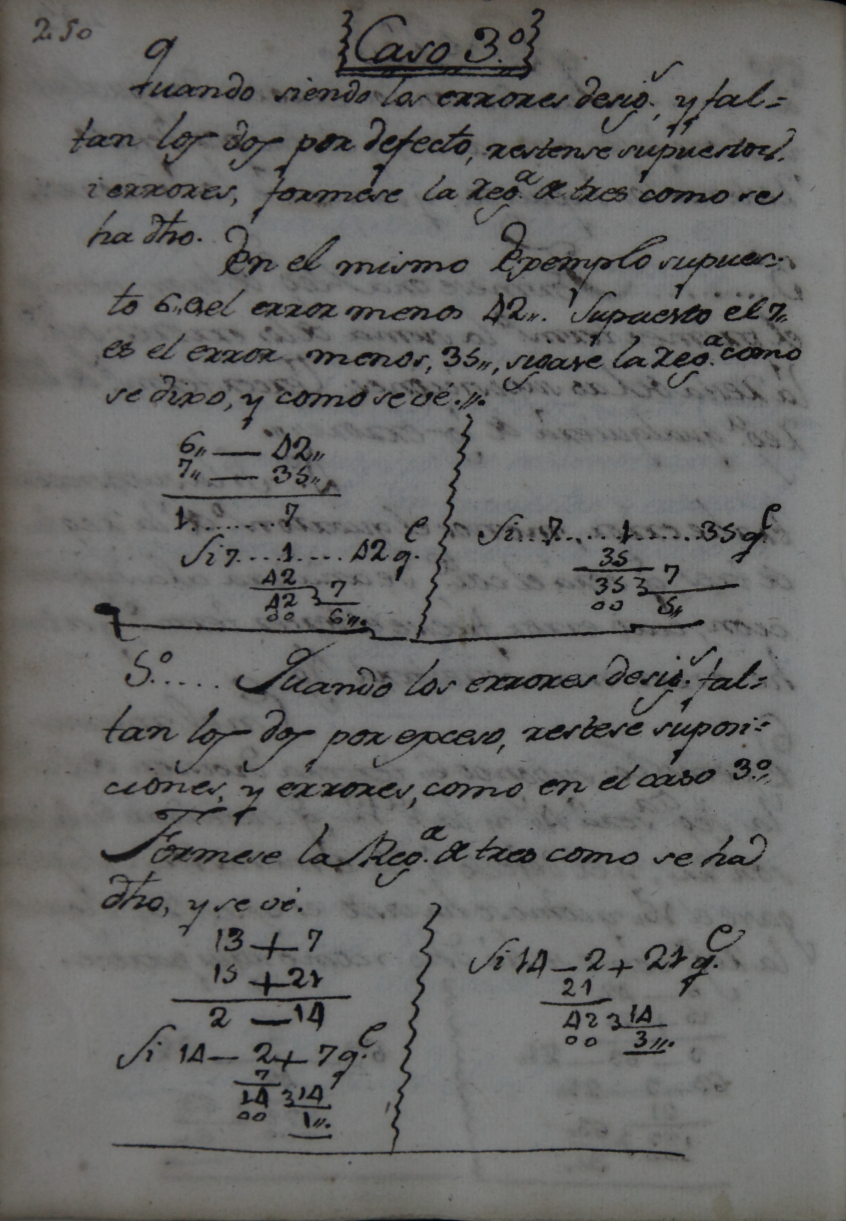 250
Caso 3.º
Quando siendo los errores desigˢ. y fal=
tan los dos por defecto, restense supuestos,
i errores, formese la Regª. de tres como se
ha dho.
En el mismo Exemplo supues-
to 6,, el error menos 42,,. Supuesto el 7,,
es el error menos, 35,,, sigase la Regª. como
se dixo, y como se ve.,,
6,, — 42,,
7,, — 35,,
1........7
Si 7....1....42 qᵉ.
42
42 3 7
00 6,,.
Si..7.....1.....35 qᵉ.
35
35 3 7
00 5,,
5.º..... Quando los errores desigˢ. fal=
tan los dos por exceso, restese suposi=
ciones, y errores, como en el caso 3.º,
Formese la Regª. de tres como se ha
dho, y se ve.
13 + 7
15 + 21
2 — 14
Si 14 — 2 + 7 qᵉ.
7
14 3 14
00 1,,.
Si 14 — 2 + 21 qᵉ.
21
42 3 14
00 3,,.